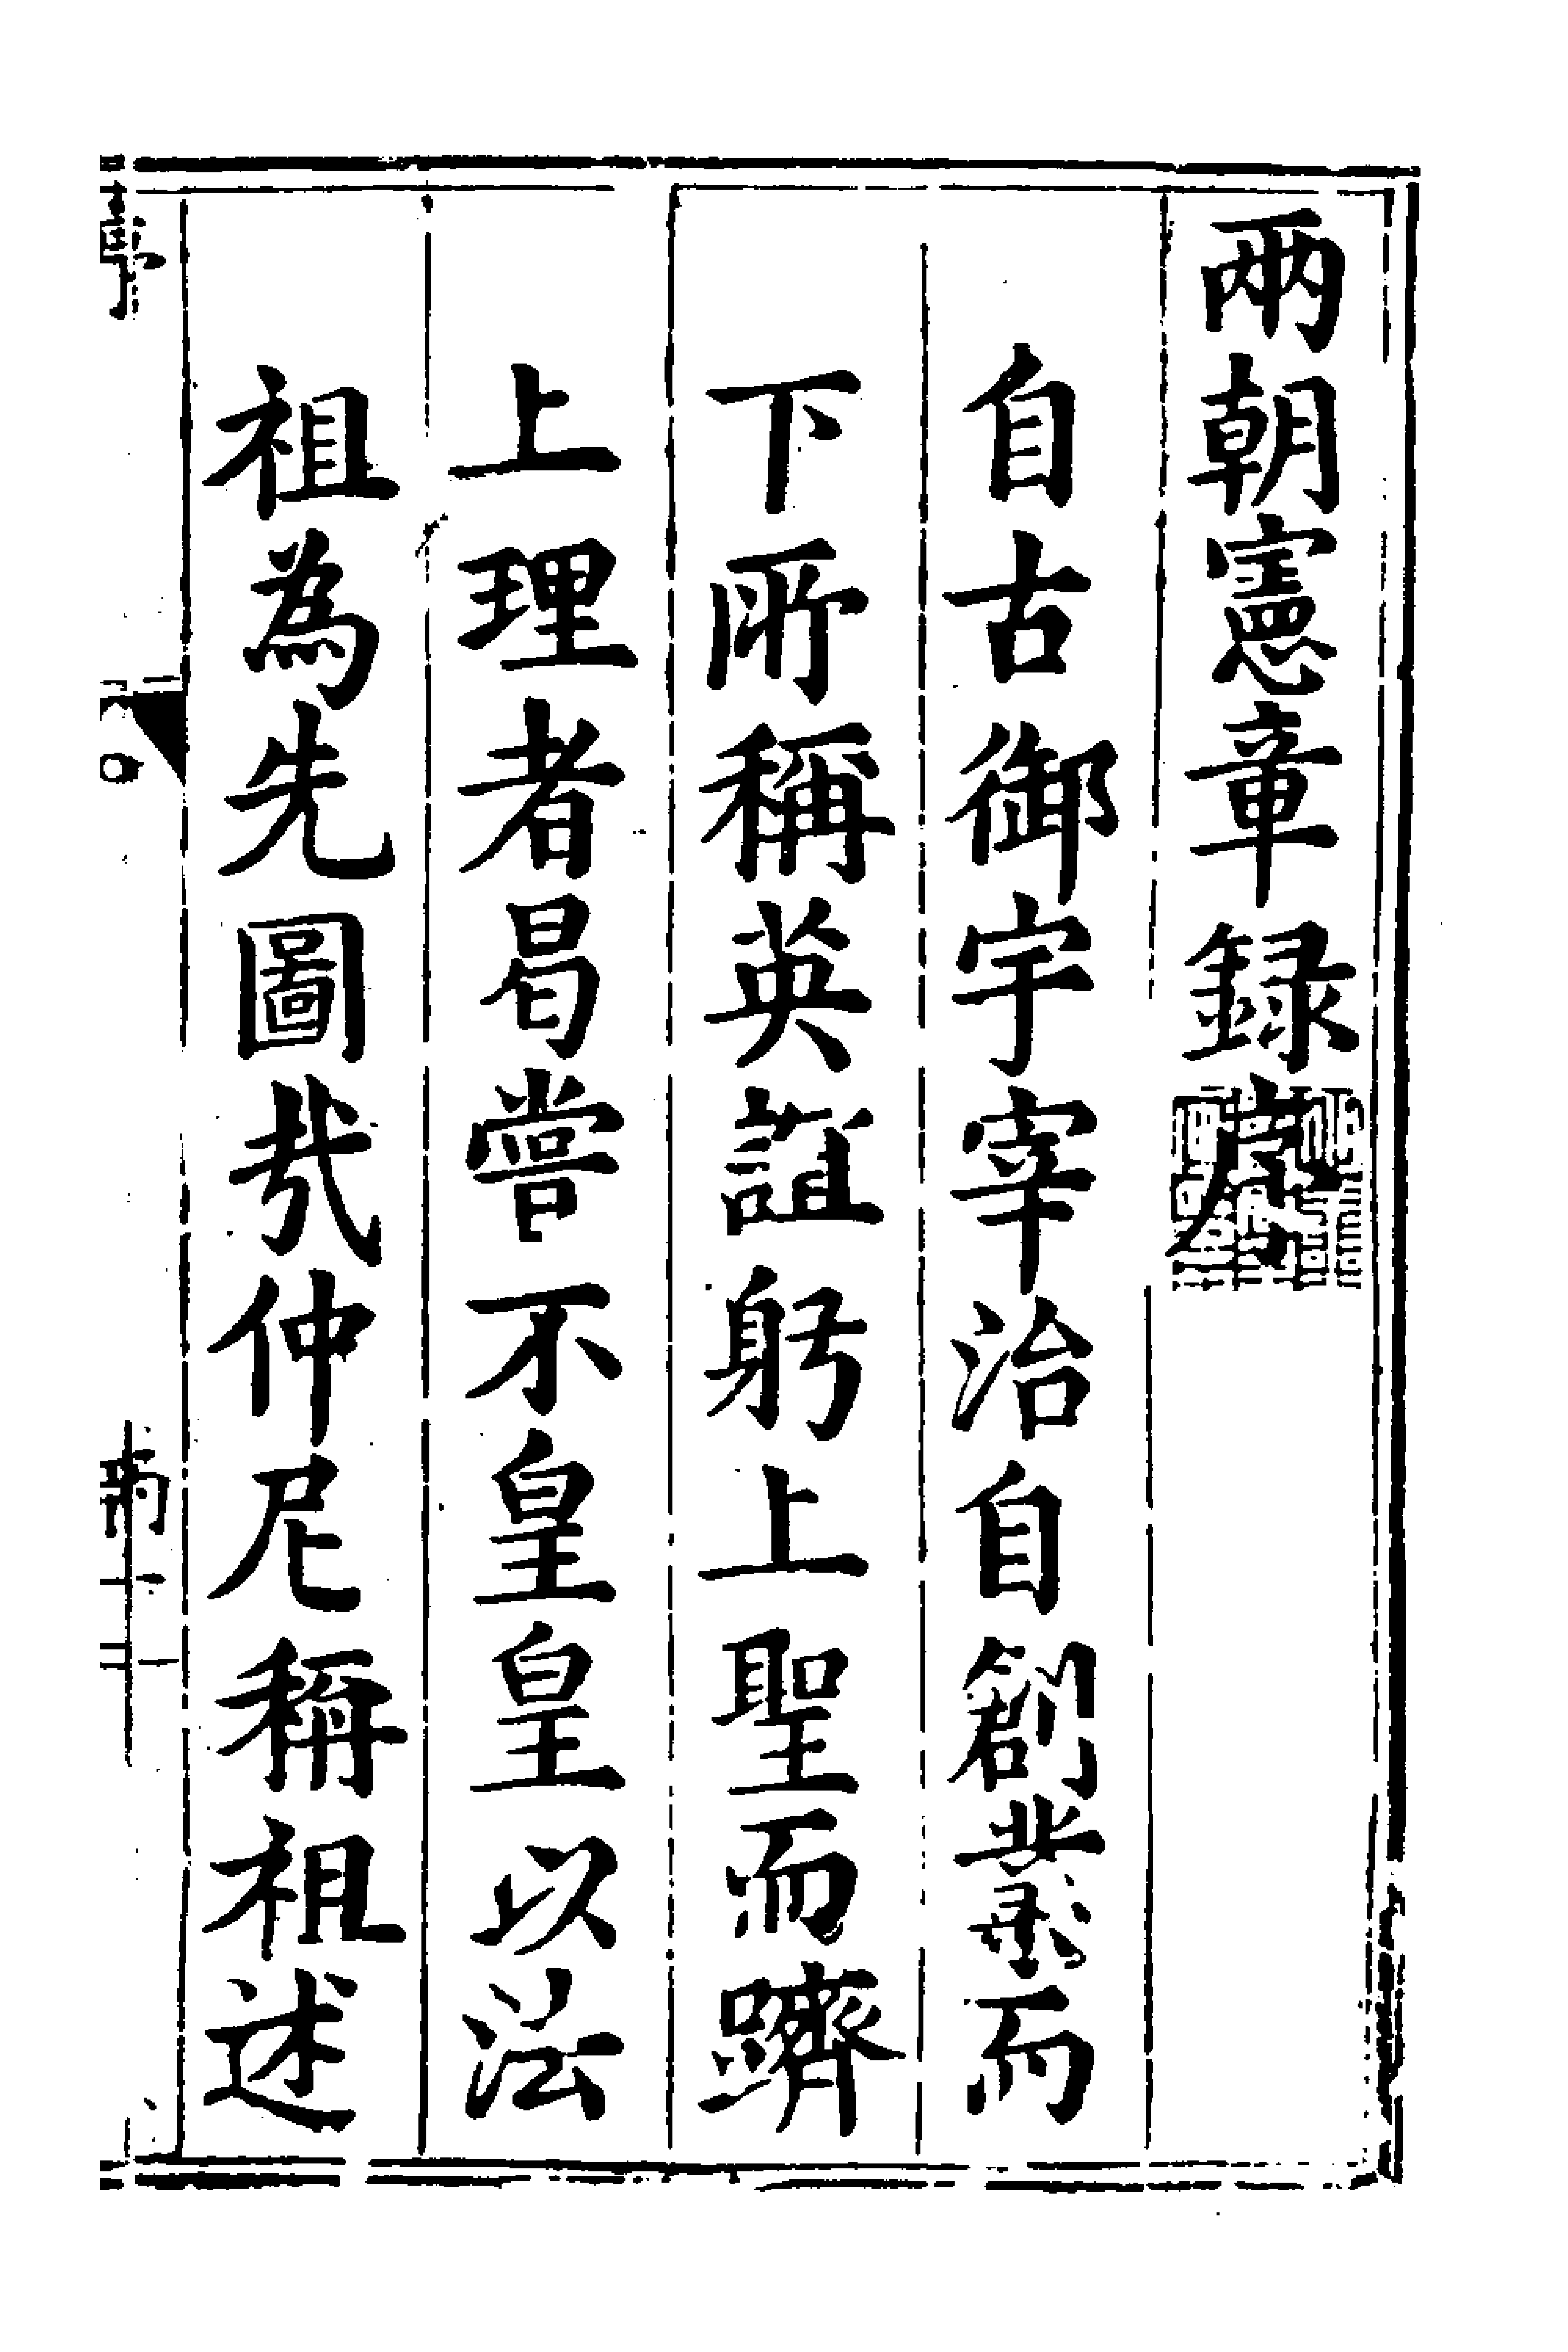 兩朝憲章録序
自古御宇宰治自創業而
下所稱英誼躬上聖而躋
上理者曷嘗不皇皇以法
祖為先圖㢤仲尼稱祖述
序